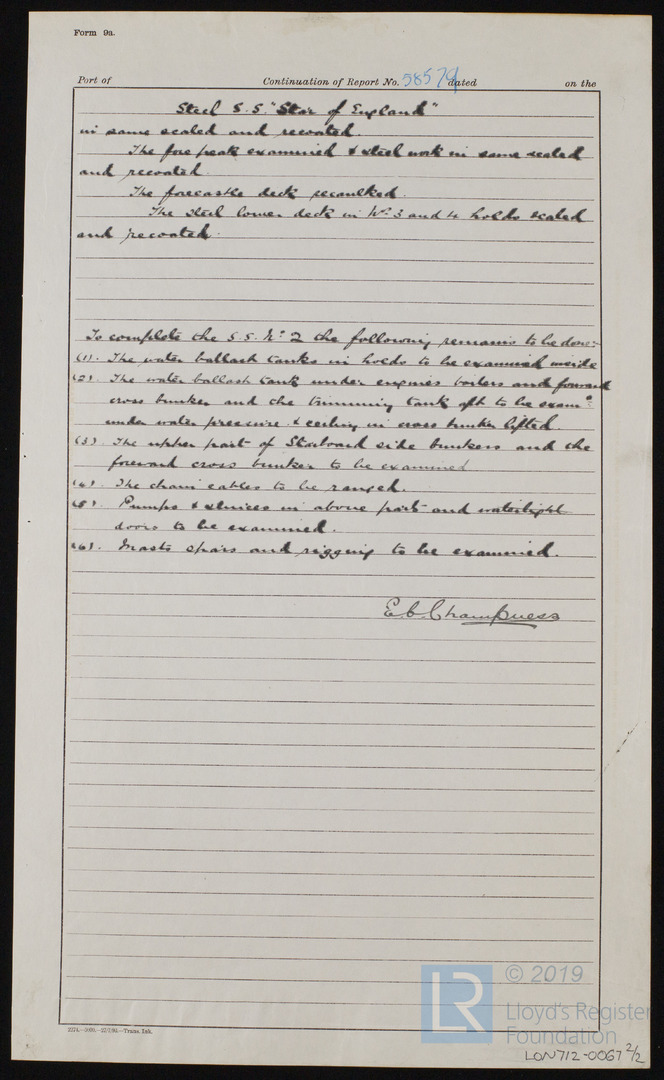 Form 9a.
Port of Continuation of Report No. 58579 dated on the
Steel S.S. "Star of England"
in same scaled and recoated.
The fore peak examined & steel work in same scaled
and recoated.
The forecastle deck recaulked.
The steel lower deck in No. 3 and 4 holds scaled
and recoated.
To complete the S.S. No. 2 the following remains to be done:-
(1). The water ballast tanks in holds to be examined inside
(2). The water ballast tank under engines boilers and forward
cross bunker and the trimming tank aft to be examd.
under water pressure & ceiling in cross bunker lifted.
(3). The upper part of Starboard side bunkers and the
forward cross bunker to be examined
(4). The chain cables to be ranged.
(5). Pumps & sluices in above parts and watertight
doors to be examined.
(6). Masts spars and rigging to be examined.
E.C. Champness
© 2019
LR
Lloyd's Register
Foundation
LON712-0067 2/2